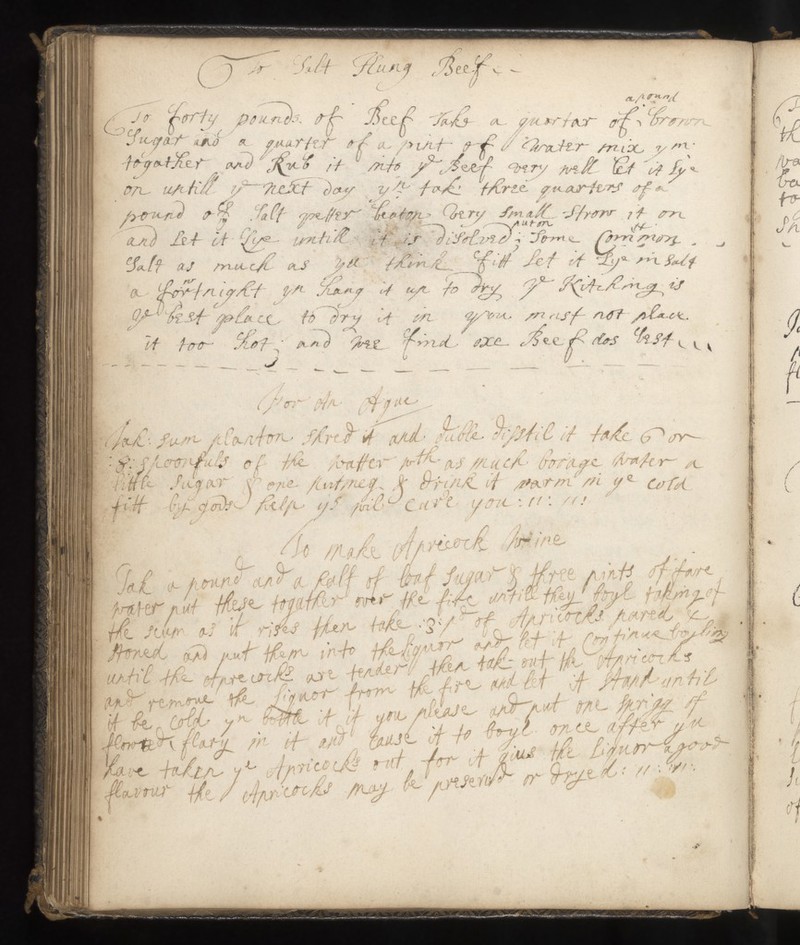 To Salt Hung Beef
a pound
To forty pounds of Beef Take a quartar of brown
Sugar and a quarter of a pint of Water mix ym
togather and Rub it into ye Beef very well let it Lye
on untill ye next day yn tak three quarters of a
pound of Salt petter beaton Very Small Strow it on
and Let it Lye untill it is disolved; put on Some Common
Salt as much as you think fitt Let it Lye in Salt
a fortnight yn hang it up to dry ye Kitching is
ye best place to dry it in you must not place
it too hot; and wee find oxe Beef dos best
For An Ague
Tak: sum planton shred it and duble disstil it take 6 or
:8: spoonfuls of the watter wth as much borage water a
little sugar & one nutmeg & drink it warm in ye cold
fitt by gods help ys will cure you
To make Apricock Wine
Tak a pound and a half of loaf sugar & three pints of fare
water put these togather over the fire untill they boyl taking of
the scum as it rises then take :3: pd of Apricocks pared &
stoned and put them into the liquor and let it Continue boyling
until the aprecocks are tender then tak out the Apricocks
and remove the liquor from the fire and let it stand until
it be cold yn bottle it if you please and put one sprigg of
flowred flary in it and cause it to boyl once after you
have taken ye Apricocks out for it gius the liquor a good
flavour the Apricocks may be preserud or dryed